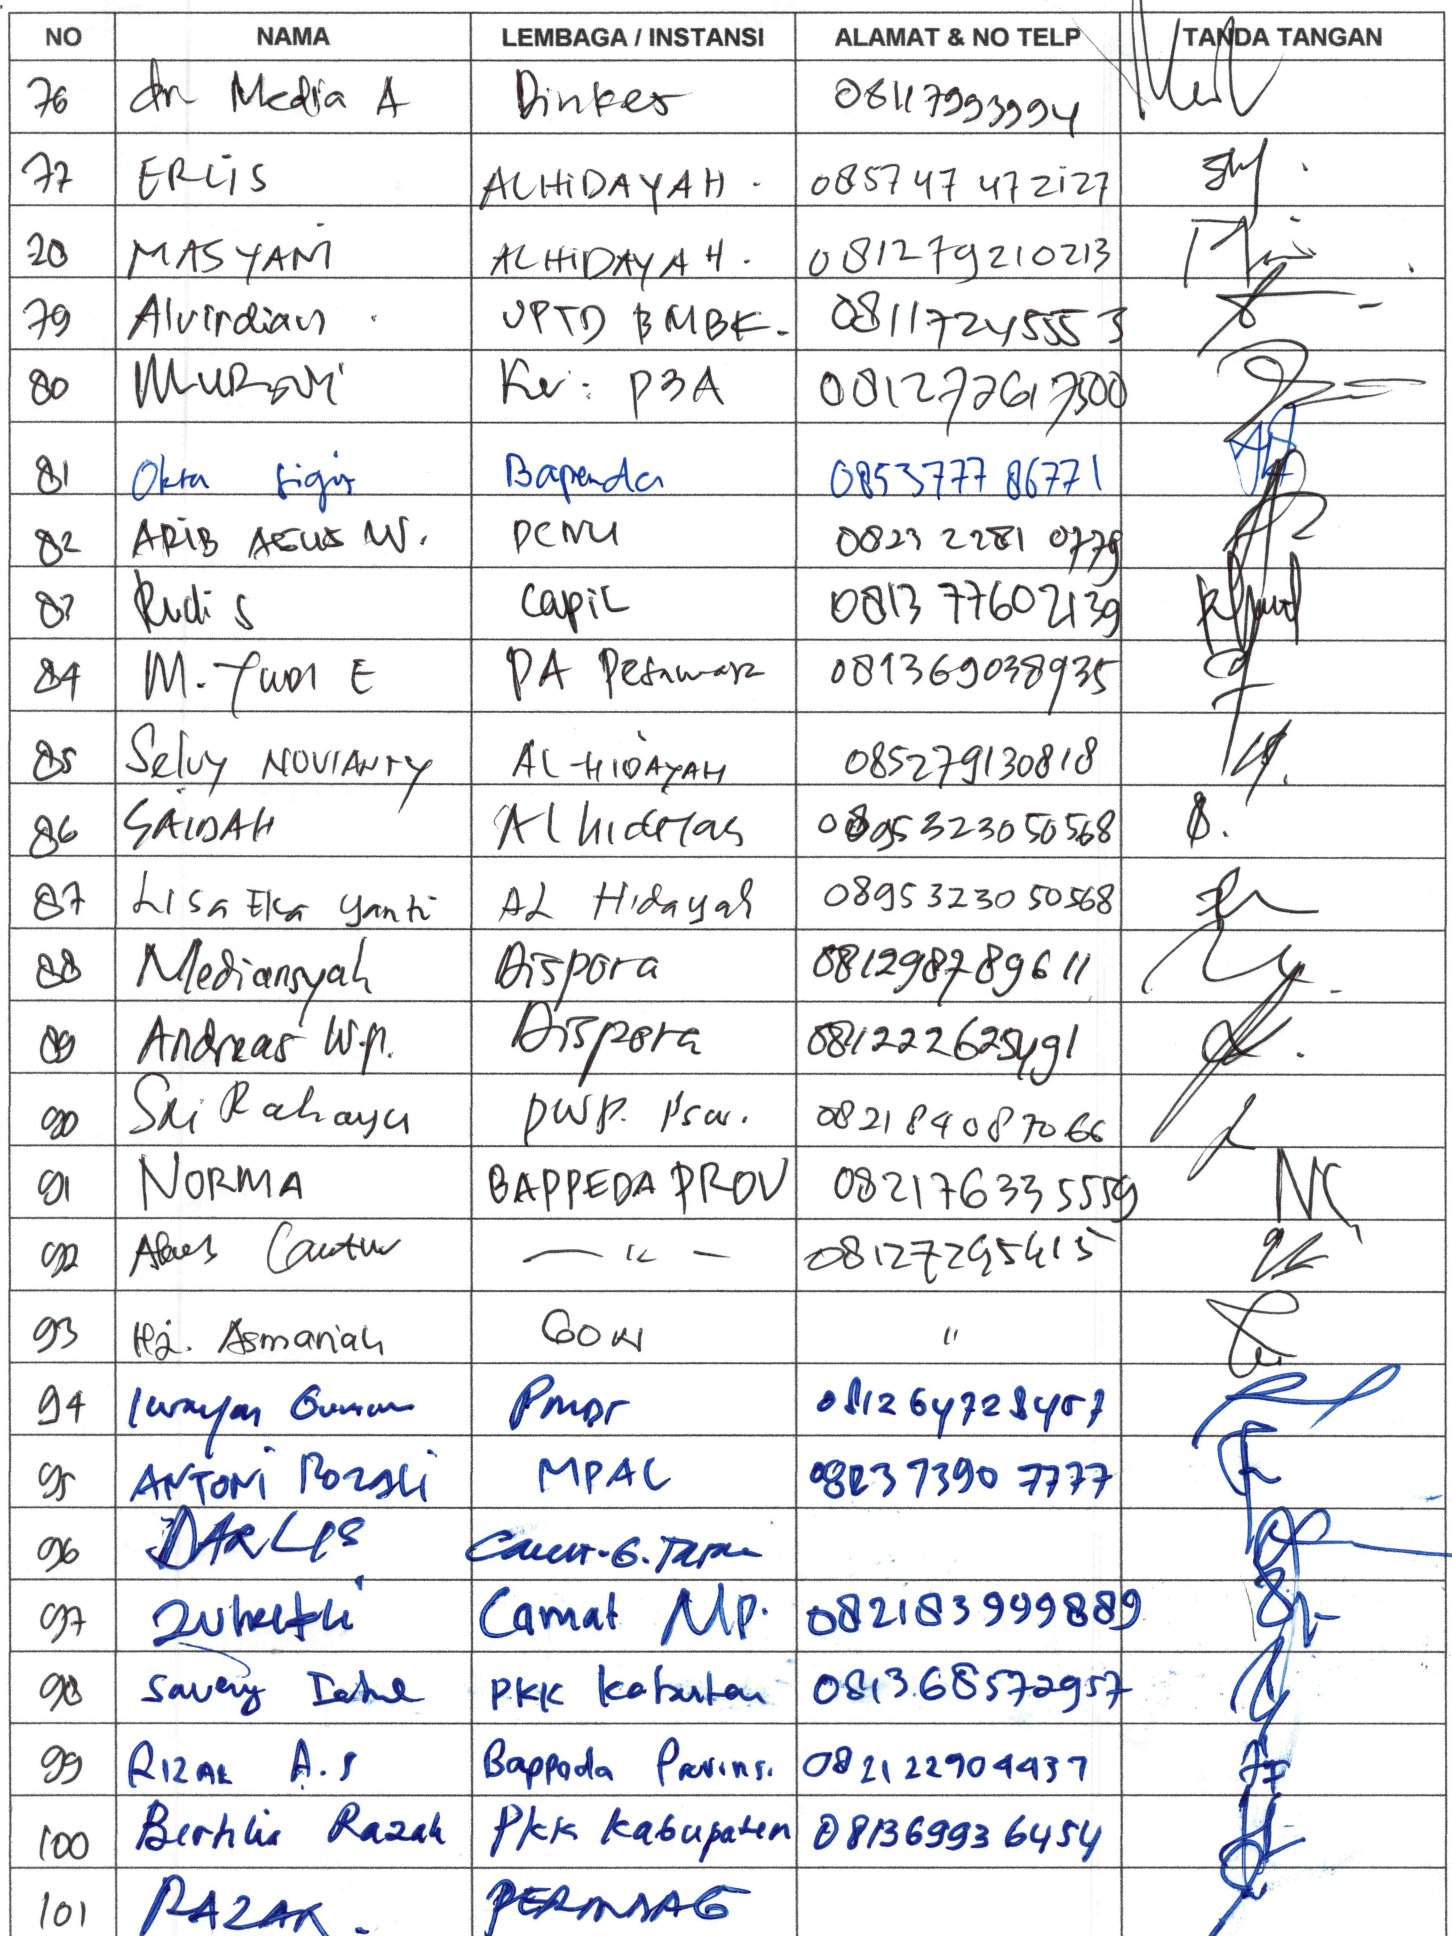 NO NAMA LEMBAGA / INSTANSI ALAMAT & NO TELP TANDA TANGAN
76 dr Media A Dinkes 08117993994
77 ERLIS ALHIDAYAH. 085747472127
78 MASYANI ALHIDAYAH. 081279210213
79 Alvirdian UPTD BMBK. 08117245553
80 MURSYI P3A 081272617500
81 Okta Sigit Bapenda 085377786771
82 ARIB AGUS W. PCNU 0823 2281 0779
83 Rudi S Capil 0813 77602139
84 M. Yudi E PA Pesawaran 081369038935
85 Selvy NOVIANTY AL-HIDAYAH 085279130818
86 SAIDAH Al hidayas 0895323050568
87 Lisa Eka yanti AL Hidayah 0895323050568
88 Mediansyah Dispora 081298789611
89 Andreas W.p. Dispora 081222625491
90 Sri Rahayu DWP. Psw. 082184087066
91 NORMA BAPPEDA PROV 082176335559
92 — " — 08127295415
93 Hj. Asmariah GOW "
94 Iwayan Gunawan PMDT 081264728457
95 ANTONI ROZALI MPAL 0823 7390 7777
96 DARLIS Camat.G.
97 Zuhelfi Camat MP. 082183999889
98 PKK Kabupaten 081368572957
99 RIZAL A.S Bappeda Provinsi 082122904437
100 Berthia Razak PKK Kabupaten 081369936454
101 RAZAK.